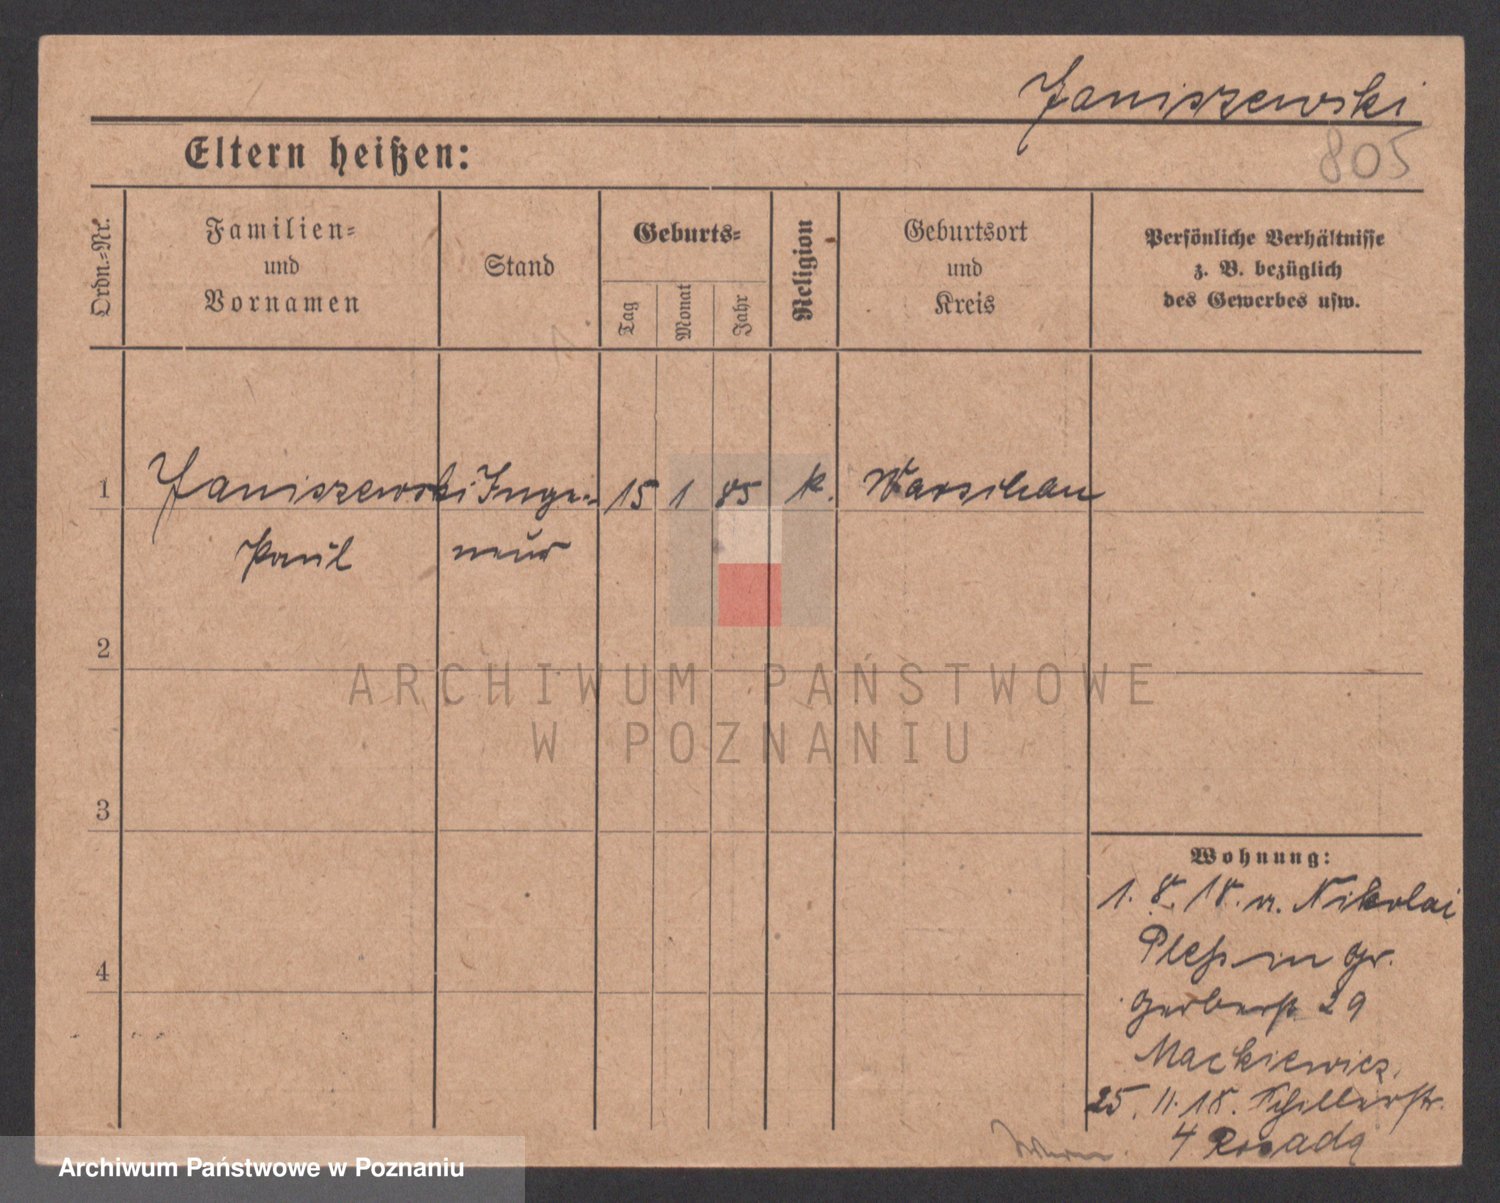 Janiszewski
805
Eltern heißen:
Ordn.-Nr.
Familien-
und
Vornamen
Stand
Geburts-
Tag
Monat
Jahr
Religion
Geburtsort
und
Kreis
Persönliche Verhältnisse
z. B. bezüglich
des Gewerbes usw.
1 Janiszewski Ingei- 15 1 85 k. Warschau
Paul neur
2
3
4
ARCHIWUM PAŃSTWOWE
W POZNANIU
Wohnung:
1. 8. 18. v. Nikolai
Pleß in Gr.
Gerberstr. 29
Mackiewicz.
25. 11. 18. Schillerstr.
4
Archiwum Państwowe w Poznaniu